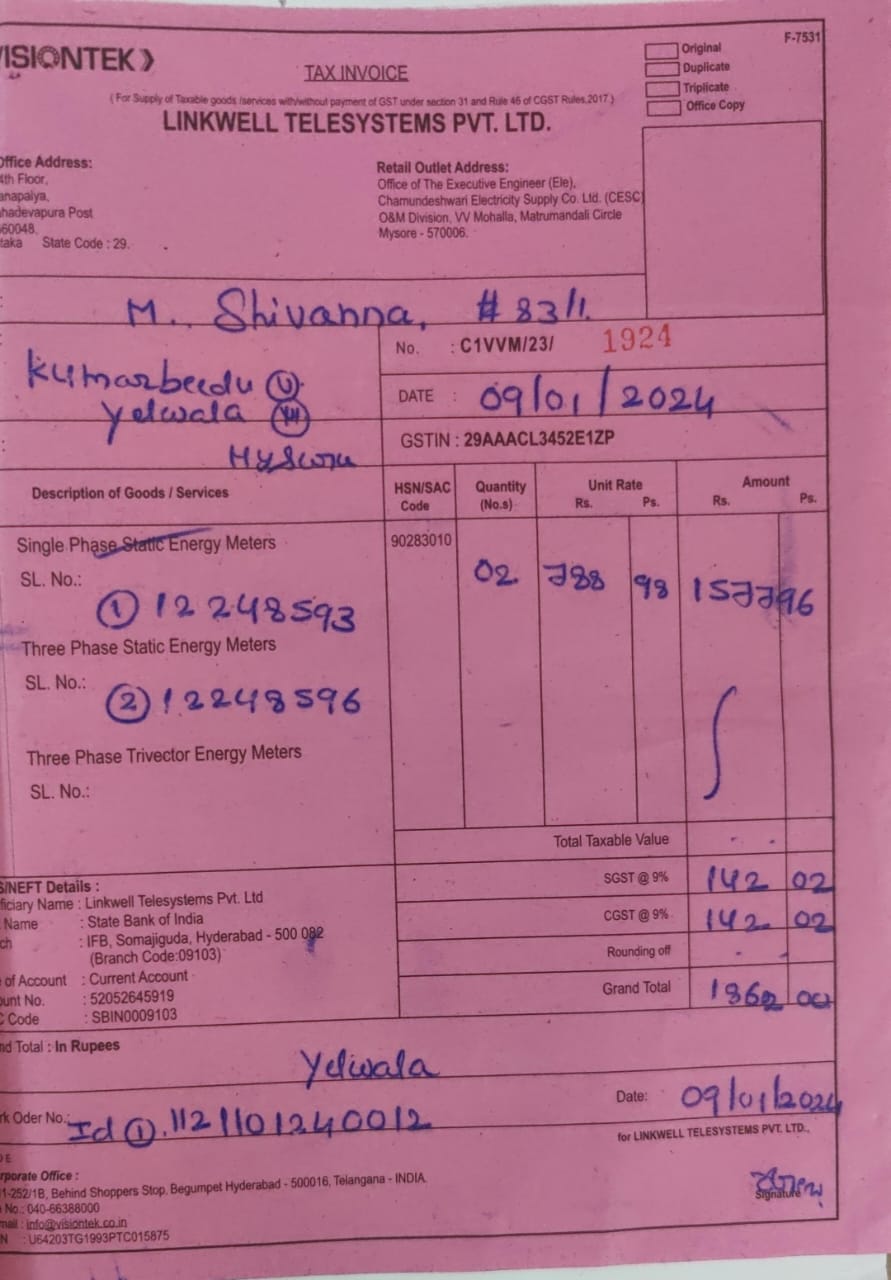 VISIONTEK
F-7531
TAX INVOICE
Original
Duplicate
Triplicate
Office Copy
( For Supply of Taxable goods /services with/without payment of GST under section 31 and Rule 46 of CGST Rules,2017 )
LINKWELL TELESYSTEMS PVT. LTD.
Office Address:
4th Floor,
anapalya,
hadevapura Post
560048.
taka State Code : 29.
Retail Outlet Address:
Office of The Executive Engineer (Ele),
Chamundeshwari Electricity Supply Co. Ltd. (CESC)
O&M Division, VV Mohalla, Matrumandali Circle
Mysore - 570006.
M. Shivanna, # 83/1.
Kumarbeedu (V)
Yelwala (H)
Mysuru
No. : C1VVM/23/ 1924
DATE : 09/01/2024
GSTIN : 29AAACL3452E1ZP
Description of Goods / Services HSN/SAC Code Quantity (No.s) Unit Rate Rs. Ps. Amount Rs. Ps.
Single Phase Static Energy Meters 90283010
SL. No.: 02 788 98 1577 96
① 12248593
Three Phase Static Energy Meters
SL. No.:
② 12248596
Three Phase Trivector Energy Meters
SL. No.:
Total Taxable Value - -
SGST @ 9% 142 02
CGST @ 9% 142 02
Rounding off - -
Grand Total 1862 00
S/NEFT Details :
ficiary Name : Linkwell Telesystems Pvt. Ltd
Name : State Bank of India
ch : IFB, Somajiguda, Hyderabad - 500 082
(Branch Code:09103)
e of Account : Current Account
unt No. : 52052645919
C Code : SBIN0009103
nd Total : In Rupees
Yelwala
rk Oder No.: Id ①. 1121101240012
Date: 09/01/2024
for LINKWELL TELESYSTEMS PVT. LTD.,
rporate Office :
1-252/1B, Behind Shoppers Stop, Begumpet Hyderabad - 500016, Telangana - INDIA.
No.: 040-66388000
mail : info@visiontek.co.in
N : U64203TG1993PTC015875
Signature